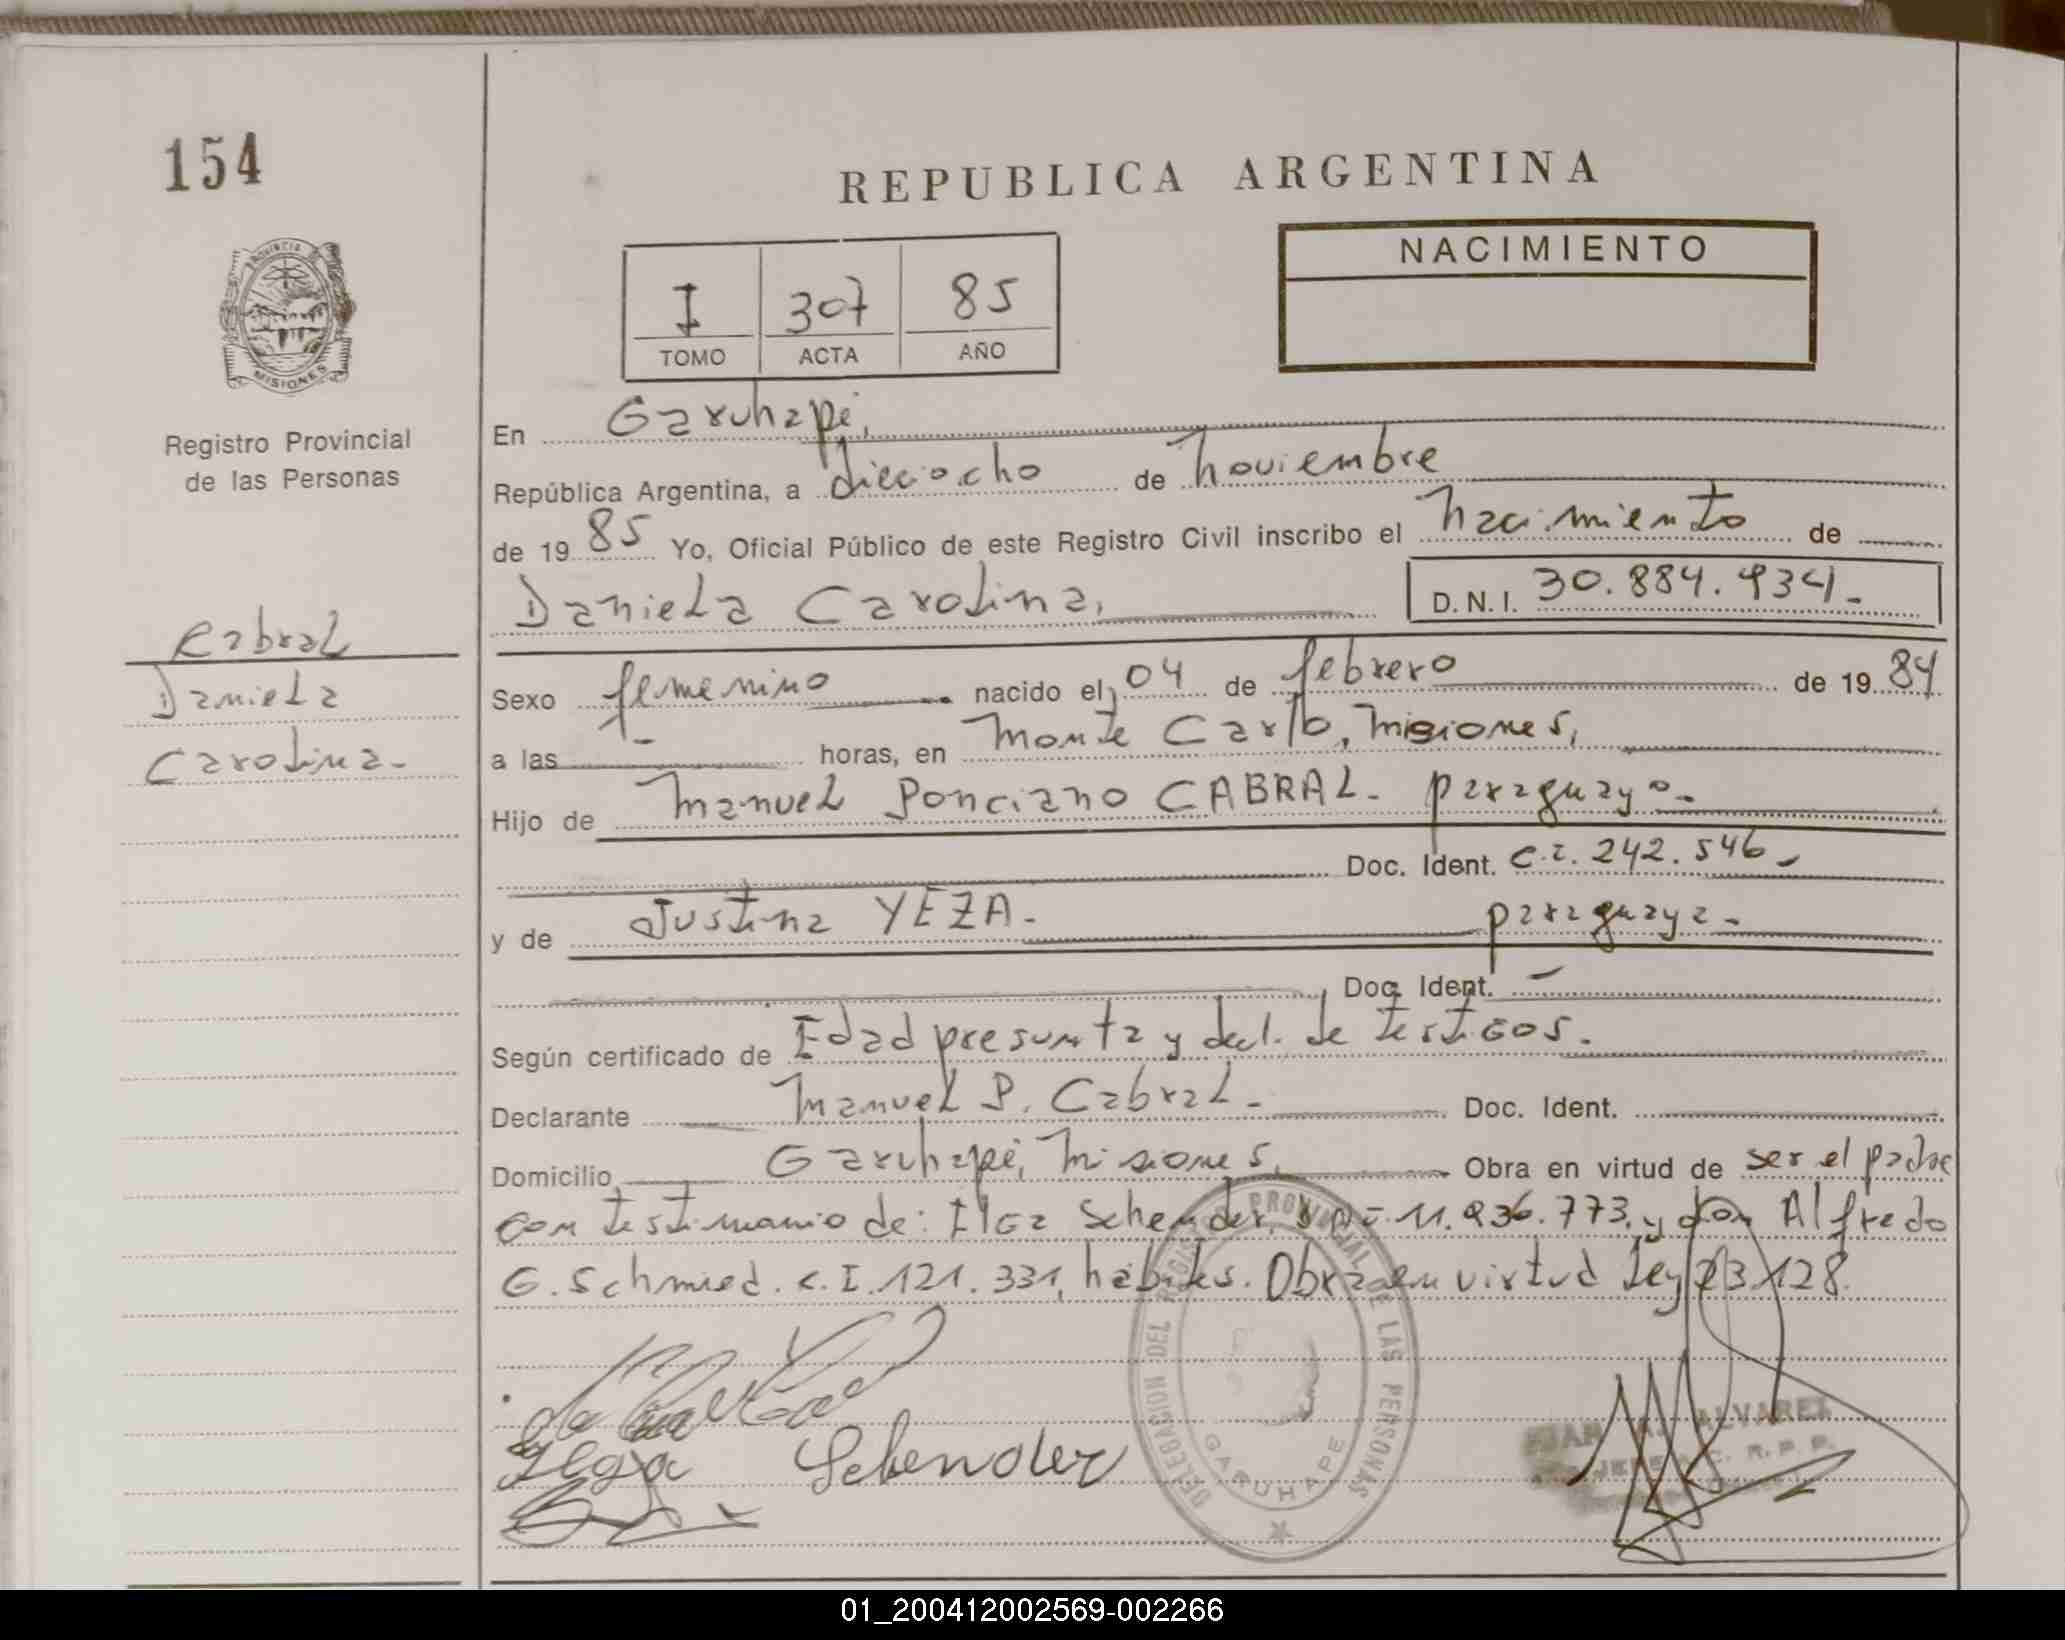 154
REPUBLICA ARGENTINA
NACIMIENTO
I 307 85
TOMO ACTA AÑO
PROVINCIA
MISIONES
Registro Provincial
de las Personas
Cabral
Daniela
Carolina-
En Garuhapé,
República Argentina, a dieciocho de noviembre
de 1985 Yo, Oficial Público de este Registro Civil inscribo el nacimiento de
Daniela Carolina, D.N.I. 30.884.934-
Sexo femenino nacido el 04 de febrero de 1984
a las - horas, en Monte Carlo, Misiones,
Hijo de Manuel Ponciano CABRAL- paraguayo-
Doc. Ident. C.I. 242.546-
y de Justina YEZA- paraguaya-
Doc. Ident. -
Según certificado de Edad presunta y decl. de testigos.
Declarante Manuel P. Cabral- Doc. Ident.
Domicilio Garuhapé, Misiones, Obra en virtud de ser el padre
con testimonio de: Elga Schender, 11.936.773, y don Alfredo
G. Schmied. C.I. 121.331, hábiles. Obra en virtud Ley 23.128.
Elga Schender
DELEGACION DEL REGISTRO PROVINCIAL DE LAS PERSONAS
GARUHAPE
JUAN A. ALVAREZ
JEFE C. R. P. P.
01_200412002569-002266